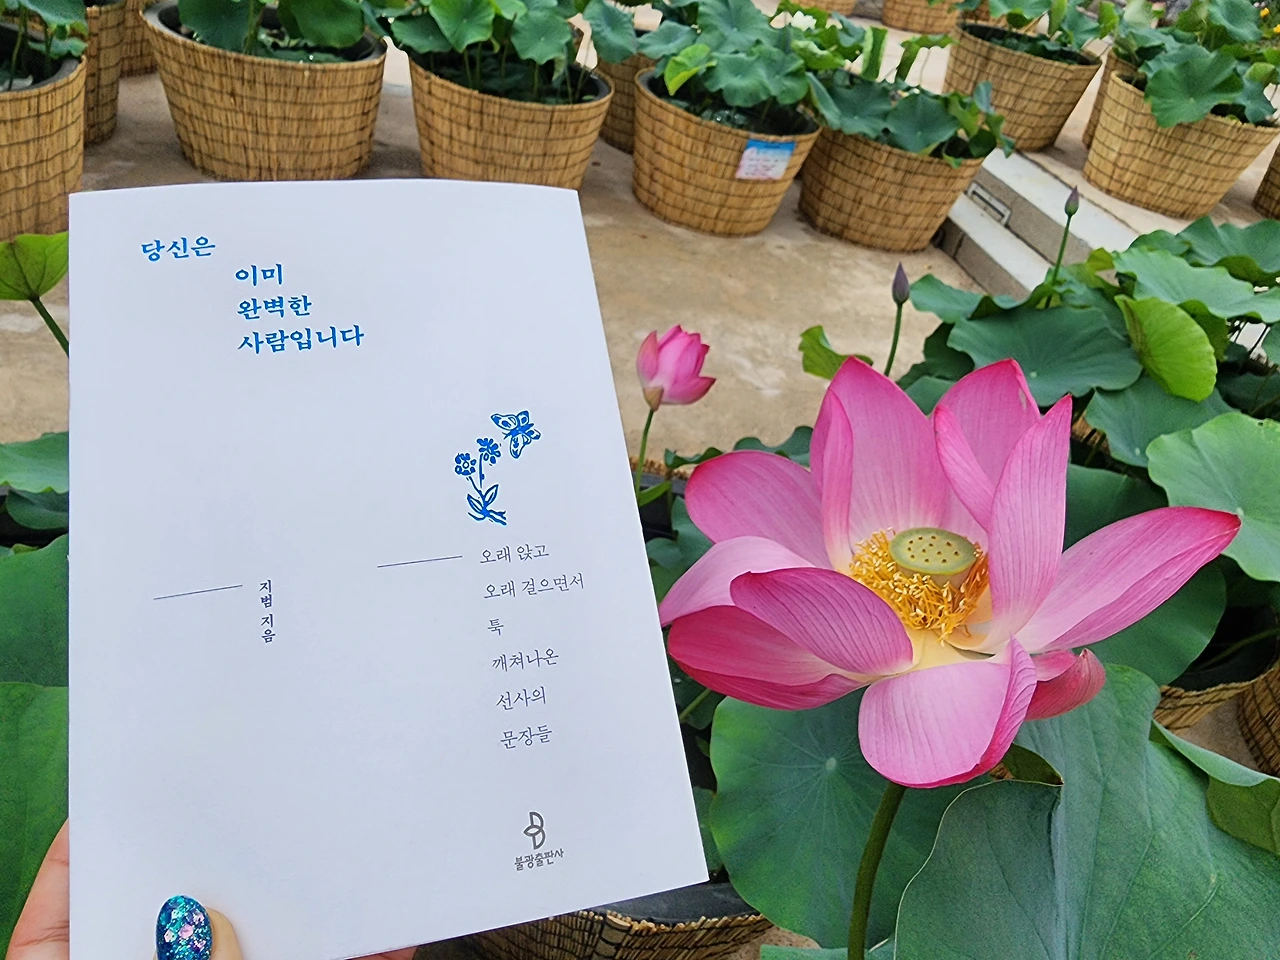 당신은
이미
완벽한
사람입니다
오래 앉고
오래 걸으면서
툭
깨쳐나온
선사의
문장들
지범 지음
불광출판사